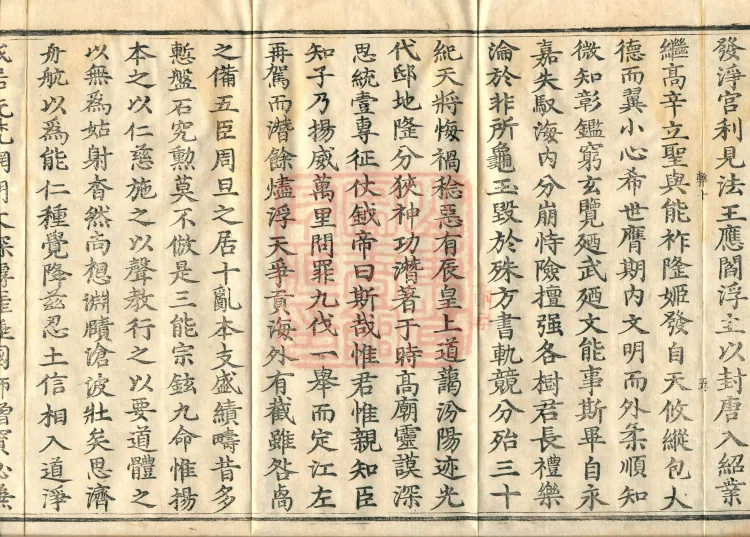 發淨官利見法王應閻浮主以封唐入紹業
繼高辛立聖與能祚隆姬發自天攸縱包大
德而翼小心希世膺期内文明而外柔順知
微知彰鑑窮玄覽廼武廼文能事斯畢自永
嘉失馭海内分崩恃險擅强各樹君長禮樂
淪於非所龜玉毀於殊方書軌競分殆三十
紀天將悔禍稔惡有辰皇上道藹汾陽迹光
代邸地隆分狹神功潛著于時高廟靈謨深
思統壹專征仗鉞帝曰斯哉惟君惟親知臣
知子乃揚威萬里問罪九伐一舉而定江左
再駕而潛餘燼浮天爭貢海外有截雖咎禼
之備五臣周旦之居十亂本支盛績疇昔多
慙盤石究勳莫不倣是三能宗鉉九命惟揚
本之以仁慈施之以聲教行之以要道體之
以無爲姑射杳然尚想淵賾滄波壯矣思濟
舟航以爲能仁種覺降茲忍土信相入道淨